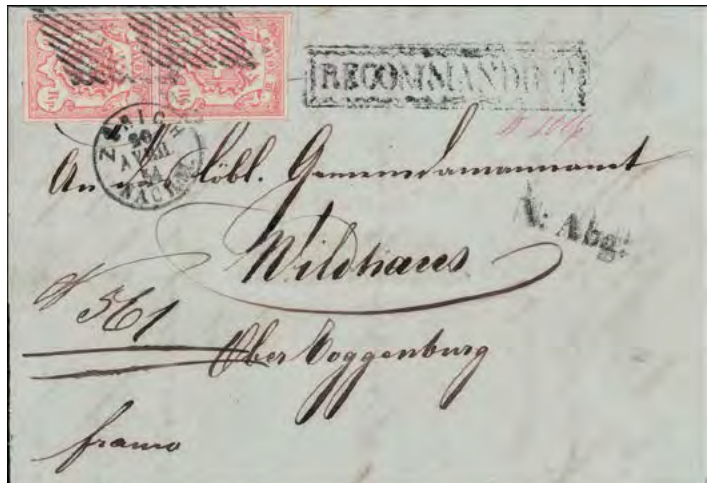 RECOMMANDIRT
ZÜRICH
20
AVRIL
54
NACHM.
An löbl. Gemeindammannamt
N: Abg.
Wildhaus
№ 361
Ober Toggenburg
franco